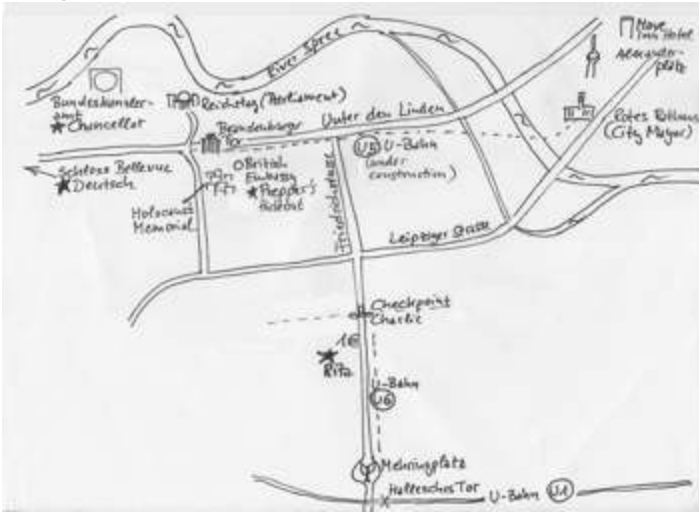 River Spree
Move
Inn Hotel
Alexander-
platz
Bundeskanzler-
amt
Chancellor
Reichstag (Parliament)
Brandenburger
Tor
Unter den Linden
Rotes Rathaus
(City Mayor)
U5 U-Bahn
(under
construction)
Schloss Bellevue
Deutsch
British
Embassy
Pepper's
Holocaust
Memorial
Friedrichstrasse
Leipziger Strasse
Checkpoint
Charlie
1€
Rita
U-Bahn
U6
Mehringplatz
Hallesches Tor
U-Bahn U1